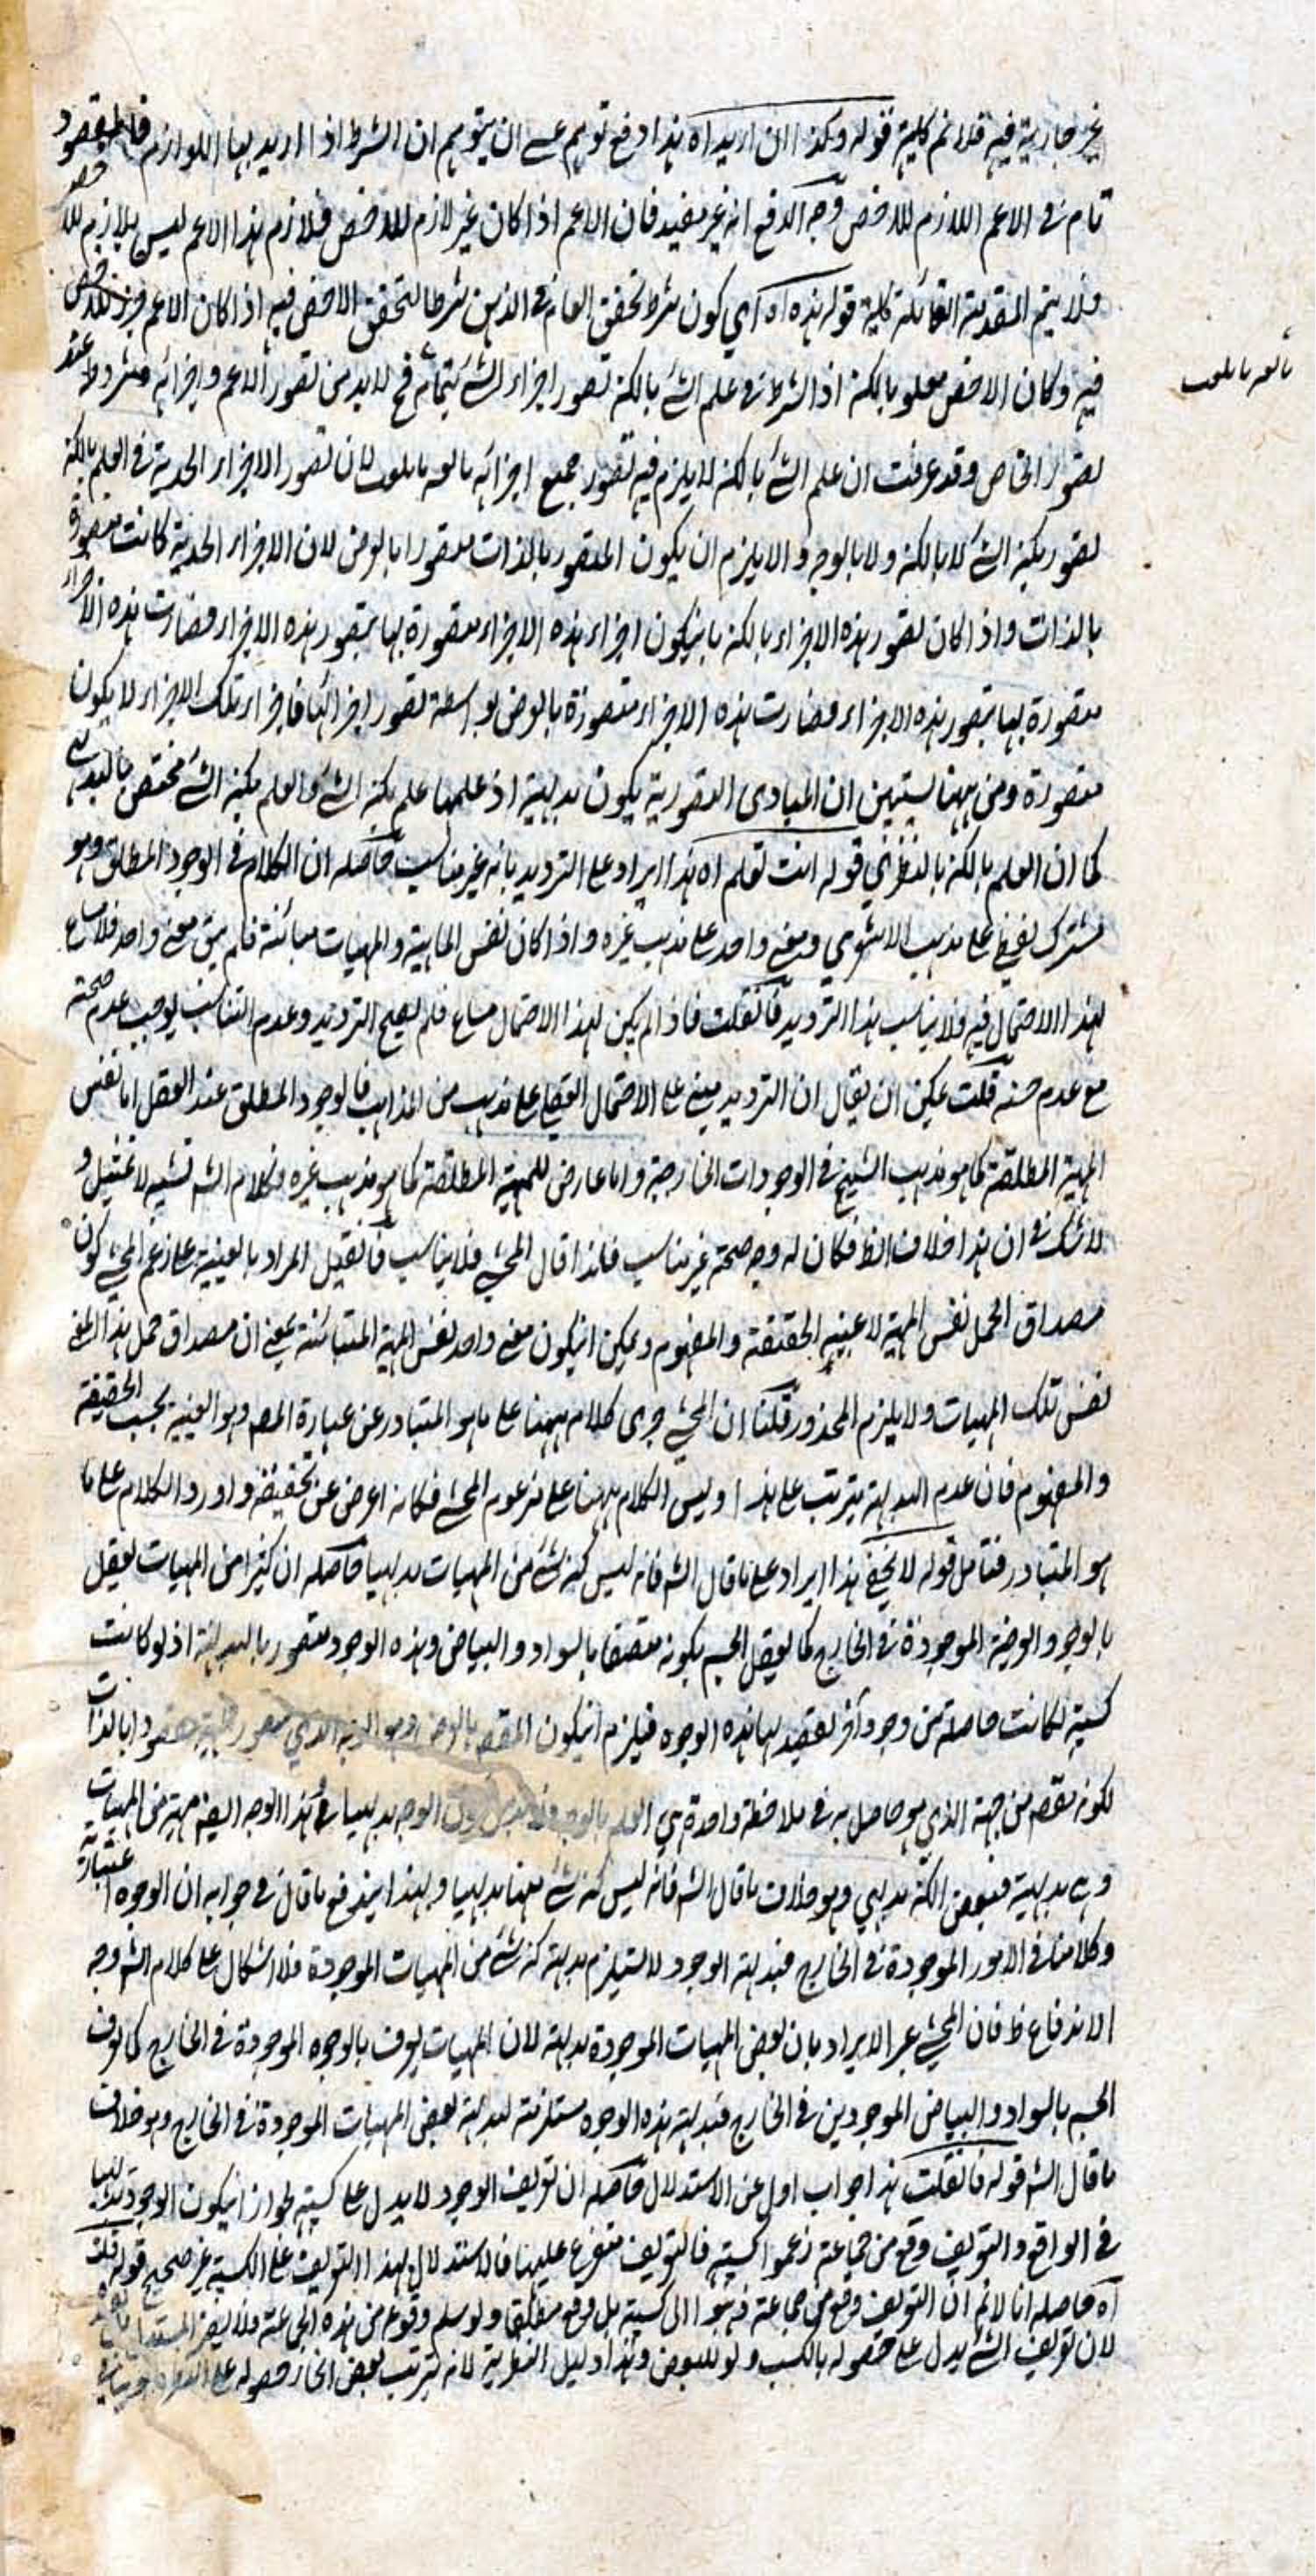 غير جارية فيه فلا تتم كلية قوله وكذا ان اريد اه هذا دفع توهم عسى ان يتوهم ان الشرط اذا اريد بها اللوازم فالمقصود
تام في الاعم اللازم للاخص وجه الدفع انه غير مفيد فان الاعم اذا كان غير لازم للاخص فلازم هذا الاعم ليس بلازم للاخص
فلا يتم المقدمة القائلة كلية قوله هذه اه اي كون شرط تحقق العام في الذهن شرطا لتحقق الاخص فيه اذا كان الاعم جزء للاخص
فيه وكان الاخص معلوما بالكنه اذ الشرط في علم الشئ بالكنه تصور اجزاء الشئ بتمامه فح لا بد من تصور الاعم واجزائه مشروطا عند
تصور الخاص وقد عرفت ان علم الشئ بالكنه لا يلزم فيه تصور جميع اجزائه بالغه ما بلغت لان تصور الاجزاء الحدية في العلم بالكنه
تصور بكنه الشئ لا بالكنه ولا بالوجه والا يلزم ان يكون المتصور بالذات متصورا بالعرض لان الاجزاء الحدية كانت متصورة
بالذات واذا كان تصور هذه الاجزاء بالكنه بانيكون اجزاء هذه الاجزاء متصورة بها بتصور هذه الاجزاء فصارت هذه الاجزاء
متصورة بها بتصور هذه الاجزاء فصارت هذه الاجزاء متصورة بالعرض بواسطة تصور اجزائها فاجزاء تلك الاجزاء لا يكون
متصورة ومن ههنا يستبين ان المبادي التصورية يكون بديهية اذ علمها علم بكنه الشئ والعلم بكنه الشئ مختص بالبديهي
كما ان العلم بالكنه بالنظري قوله انت تعلم اه هذا ايراد على الترديد بانه غير مناسب حاصله ان الكلام في الوجود المطلق وهو
مشترك لفظي على مذهب الاشعري ومعنى واحد على مذهب غيره واذا كان نفس الماهية والمهيات مبائنة فلم يبق معنى واحد فلا مساغ
لهذا الاحتمال فيه فلا يناسب هذا الترديد فانقلت فاذا لم يكن لهذا الاحتمال مساغ فلم يصح الترديد وعدم التناسب يوجب عدم صحته
مع عدم حسنه قلت يمكن ان يقال ان الترديد مبني على الاحتمال العقلي على مذهب من المذاهب فالوجود المطلق عند العقل اما نفس
المهية المطلقة كما هو مذهب الشيخ في الوجودات الخارجية واما عارض للمهية المطلقة كما هو مذهب غيره فكلام الشه تشبيه لا تمثيل و
لا شك في ان هذا خلاف الظ فكان له وجه صحة غير مناسب فلذا قال المحشي فلا يناسب فانقيل المراد بالعينية على زعم المحشي كون
مصداق الحمل نفس المهية لا عينيه الحقيقة والمفهوم ويمكن انيكون معنى واحد نفس المهية المتبائنة بمعنى ان مصداق حمل هذا المعنى
نفس تلك المهيات ولا يلزم المحذور قلنا ان المحشي جرى كلامه ههنا على ما هو المتبادر عن عبارة المصه وهو العينية بحسب الحقيقة
والمفهوم فان عدم البديهة يترتب على هذا وليس الكلام ههنا على مزعوم المحشي فكانه اعرض عن تحقيقه واورد الكلام على ما
هو المتبادر فتامل قوله لا يخفى هذا ايراد على ما قال الشه فانه ليس كنه شئ من المهيات بديهيا حاصله ان كثيرا من المهيات يعقل
بالوجوه العرضية الموجودة في الخارج كما يعقل الجسم بكونه متصفا بالسواد والبياض وهذه الوجوه متصور بالبديهة اذ لو كانت
كسبية لكانت حاصلة من وجود آخر لقصد لها هذه الوجوه فيلزم انيكون المقصه بالعرض وهو الوجه الذي متصور ... مقصودا بالذات
لكونه مقصه من جهة الذي هو حاصل به في ملاحظة واحدة هي العلم بالوجه فلا بد من كون الوجه بديهيا في هذا الوجه ايضه مهية من المهيات
وهي بديهية فبعض الكنه بديهي وهو خلاف ما قال الشه فانه ليس كنه شئ منها بديهيا وبهذا يندفع ما قال في جوابه ان الوجوه اعتبارية
وكلامنا في الامور الموجودة في الخارج فبديهة الوجود لا يستلزم بديهة كنه شئ من المهيات الموجودة فلا اشكال على كلام الشه وجه
الاندفاع ظ فان المحشي عبر الايراد بان بعض المهيات الموجودة بديهة لان المهيات يعرف بالوجوه الموجودة في الخارج كما يعرف
الجسم بالسواد والبياض الموجودين في الخارج فبديهة هذه الوجوه مستلزمة لبديهة بعض المهيات الموجودة في الخارج وهو خلاف
ما قال الشه قوله فانقلت هذا جواب اول عن الاستدلال حاصله ان تعريف الوجود لا يدل على كسبيته لجواز انيكون الوجود بديهيا
في الواقع والتعريف وقع من جماعة زعموا كسبيته فالتعريف متفرع عليها فالاستدلال بهذا التعريف على الكسبية غير صحيح قوله قلت
اه حاصله انا لا نم ان التعريف وقع من جماعة ذهبوا الى كسبية بل وقع مطلق ولو سلم وقوعه من هذه الجماعة فلا يضر المستدل ...
لان تعريف الشئ يدل على حصوله بالكسب ولو للبعض وهذا دليل النظرية لانه يترتب بعض انحاء حصوله على النظر ...
بالغه ما بلغت